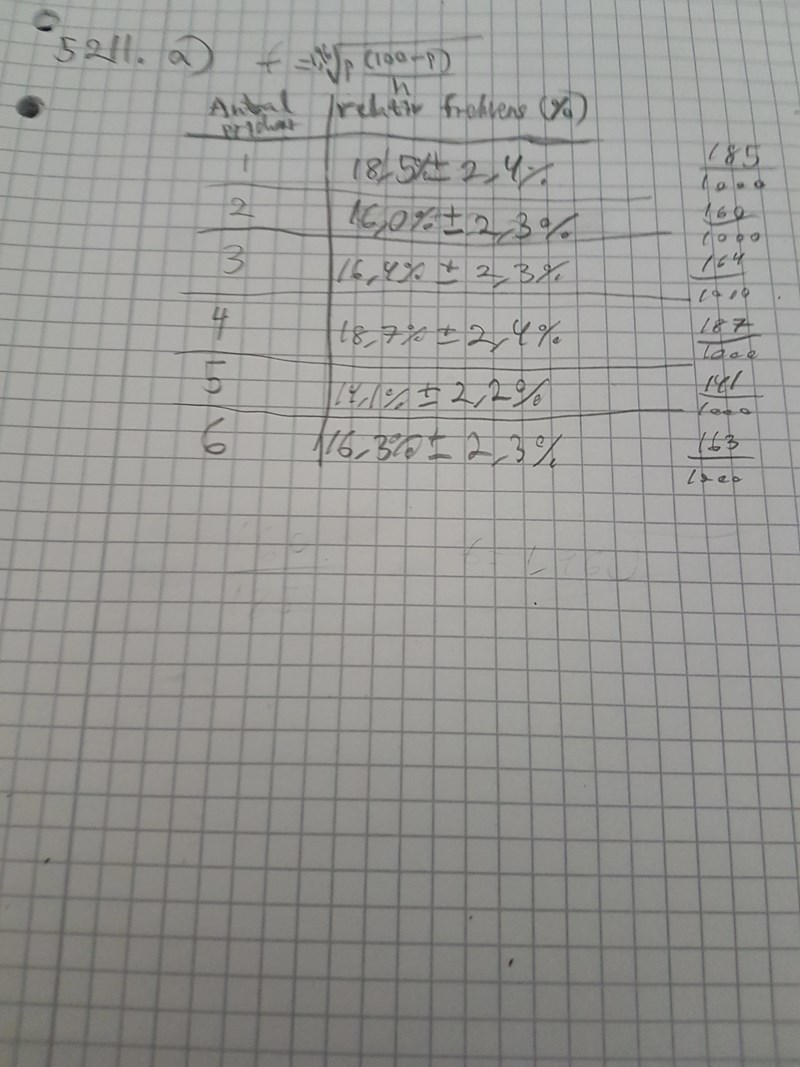 5211. a) f = 1,96√p(100-p)/n
Antal prickar | relativ frekvens (%)
1 | 18,5% ± 2,4% 185/1000
2 | 16,0% ± 2,3% 160/1000
3 | 16,4% ± 2,3% 164/1000
4 | 18,7% ± 2,4% 187/1000
5 | 14,1% ± 2,2% 141/1000
6 | 16,3% ± 2,3% 163/1000